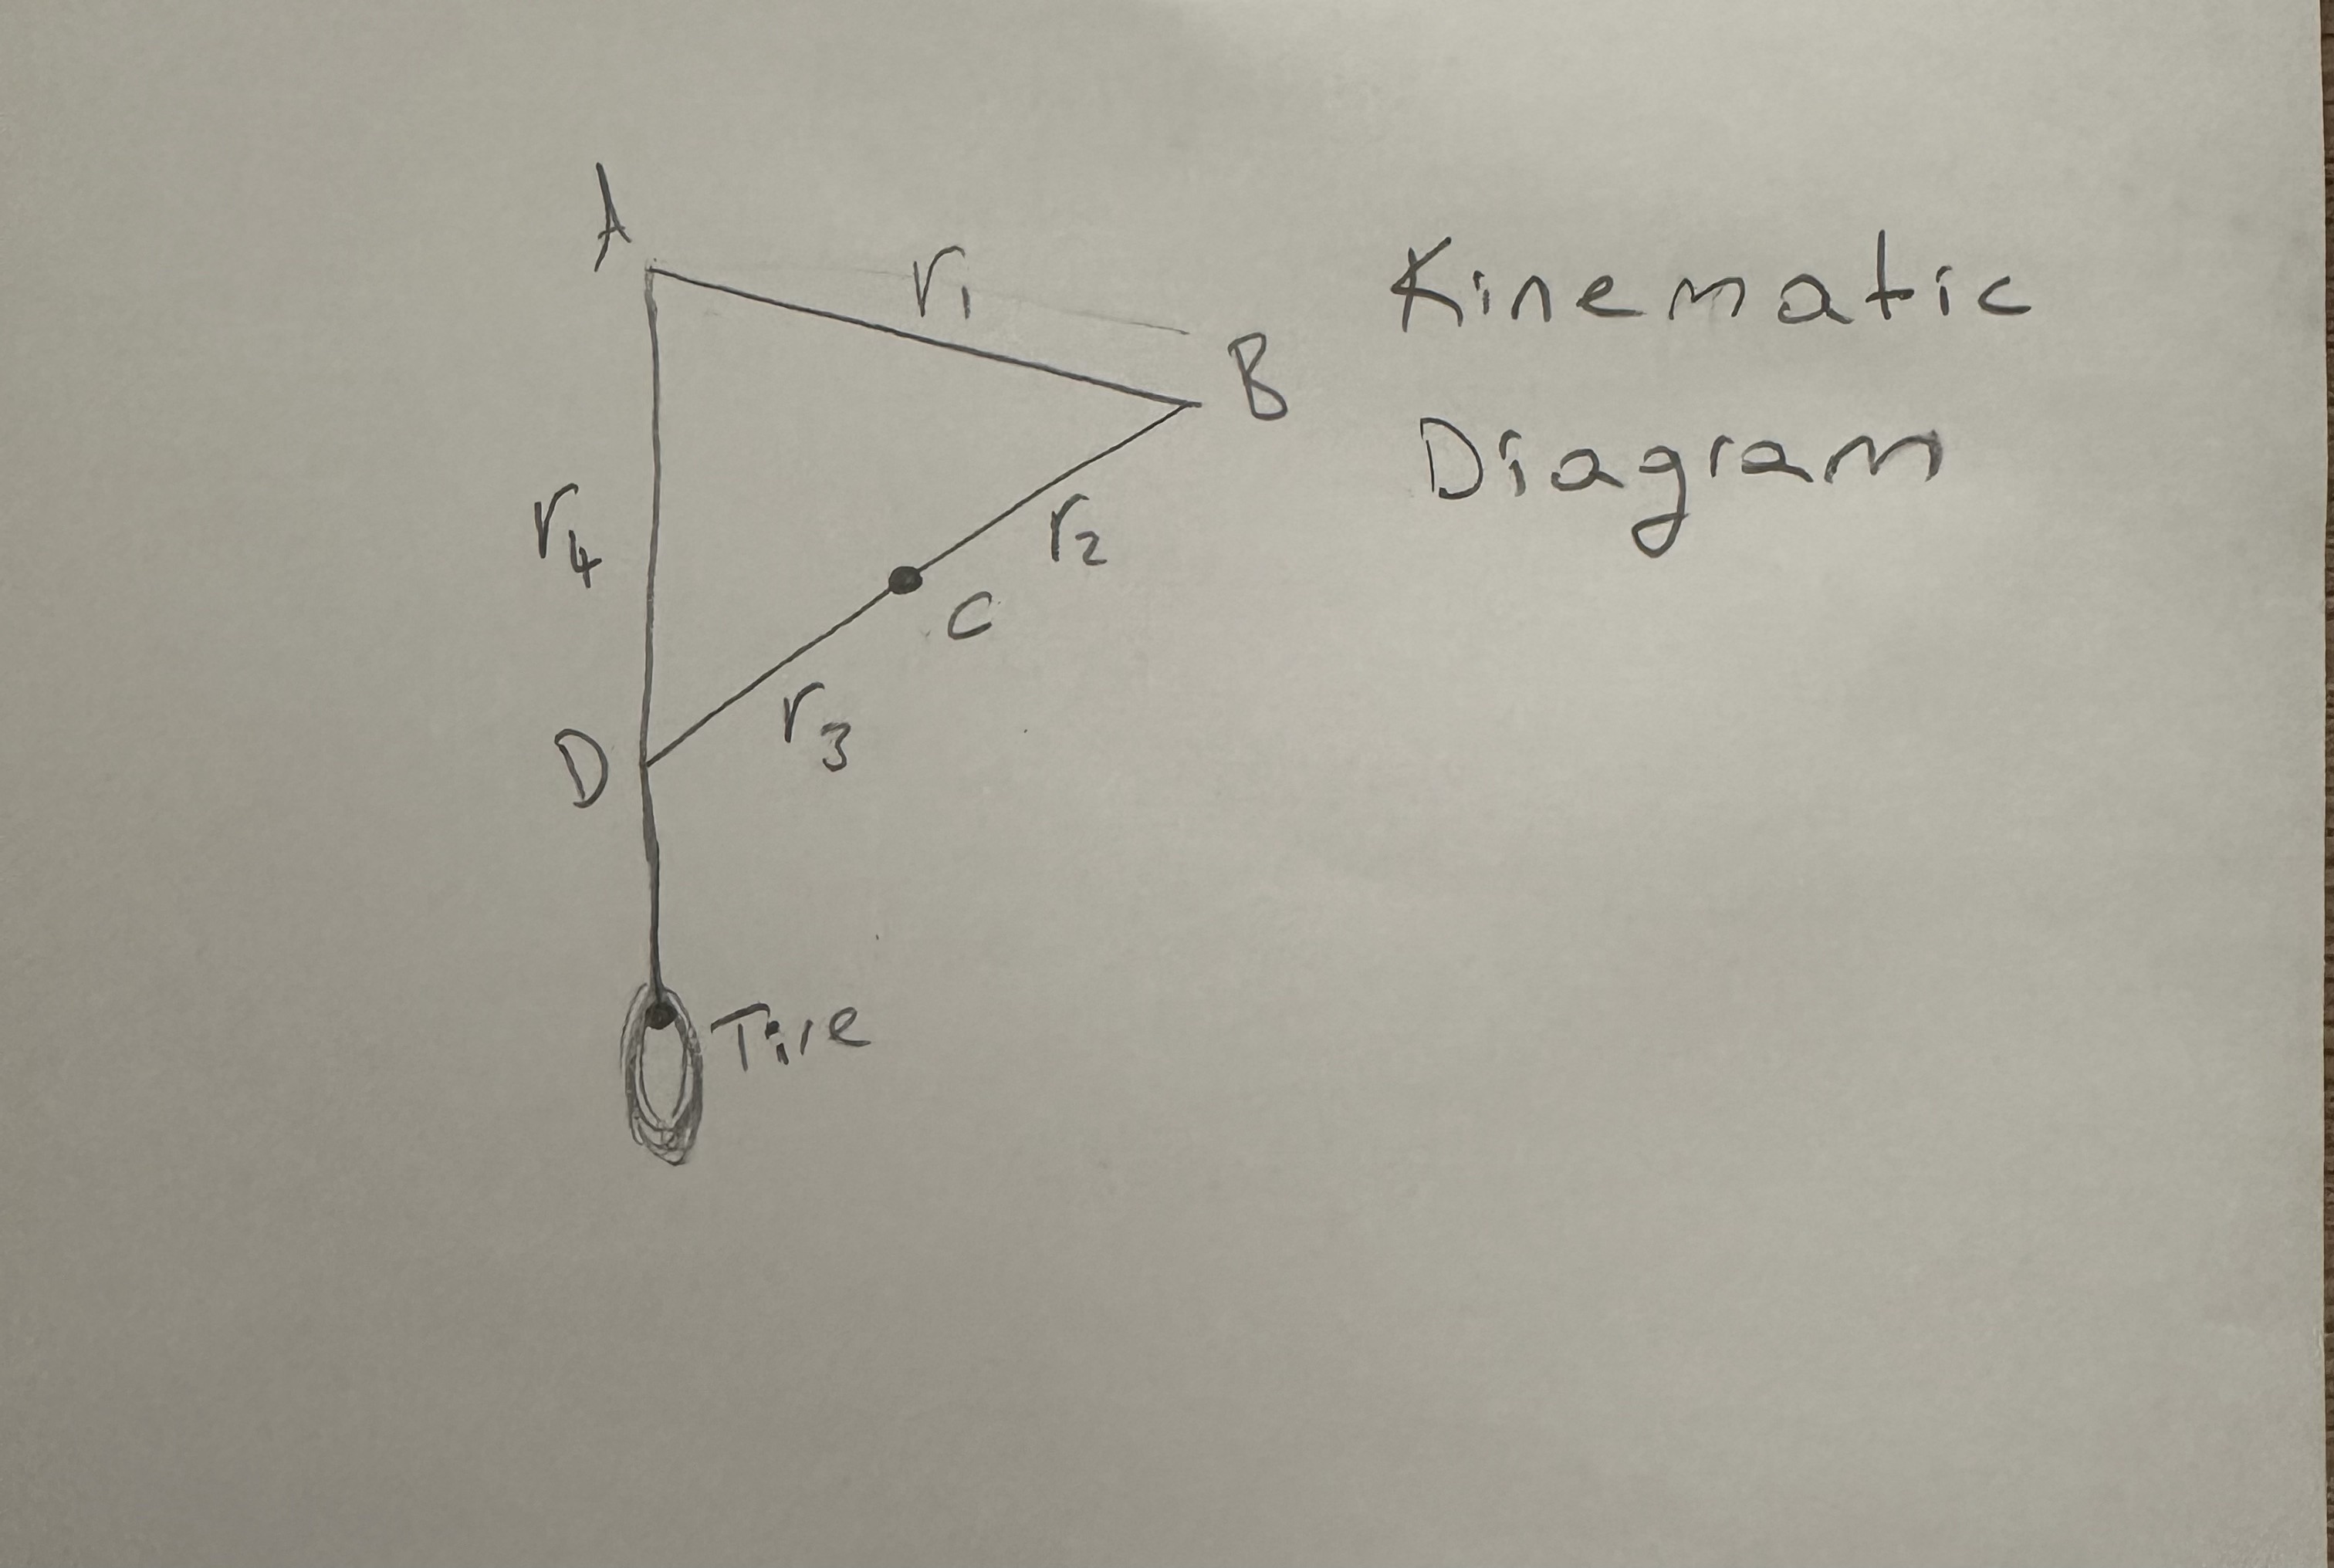 A
r₁
Kinematic
B
Diagram
r₄
r₂
C
r₃
D
Tire